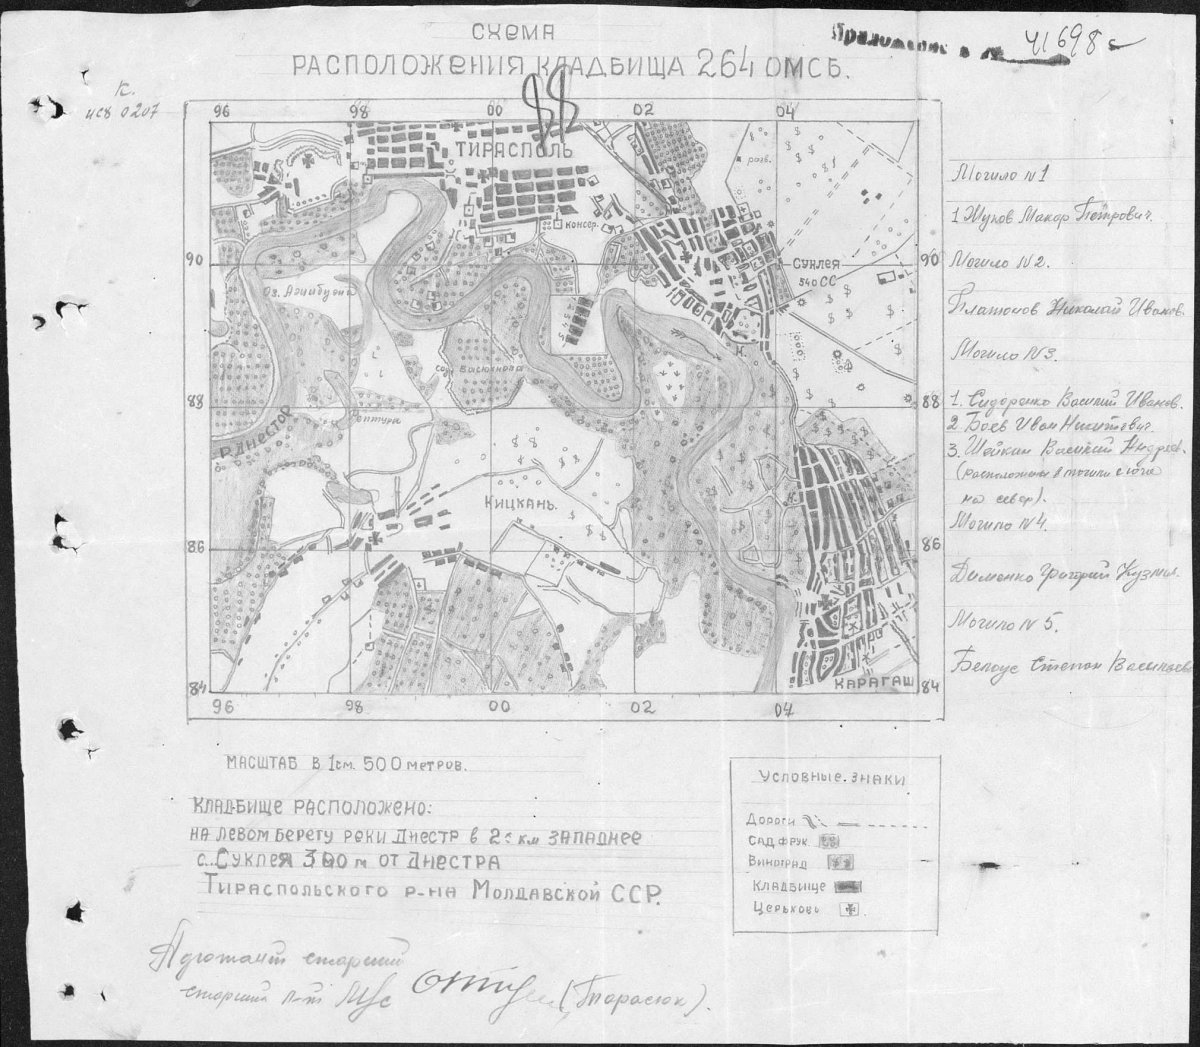 СХЕМА
РАСПОЛОЖЕНИЯ КЛАДБИЩА 264 ОМСБ.
Приложение к № 41698 с
К.
исв 0207
88
96 98 00 02 04
ТИРАСПОЛЬ
разв.
консер.
90 90
СУКЛЕЯ
540 СС
88 88
Р. ДНЕСТР
КИЦКАНЬ.
86 86
84 84
КАРАГАШ
96 98 00 02 04
Могила №1
1 Жуков Макар Петрович.
Могила №2.
Платонов Николай Иванов.
Могила №3.
1. Сидоренко Василий Иванов.
2. Боев Иван Никитович.
3. Шейкин Василий Андреев.
(расположены в могиле с юга
на север).
Могила №4.
Дименко Григорий Кузьм.
Могила №5.
Белоус Степан Васильевич
МАСШТАБ В 1см. 500 МЕТРОВ.
КЛАДБИЩЕ РАСПОЛОЖЕНО:
НА ЛЕВОМ БЕРЕГУ РЕКИ ДНЕСТР В 2х КМ ЗАПАДНЕЕ
С. СУКЛЕЯ 300 М ОТ ДНЕСТРА
ТИРАСПОЛЬСКОГО Р-НА МОЛДАВСКОЙ ССР.
УСЛОВНЫЕ ЗНАКИ
ДОРОГИ
САД ФРУК.
ВИНОГРАД
КЛАДБИЩЕ
ЦЕРЬКОВЬ
Адютант старший
старший л-т М/с (Тарасюк).